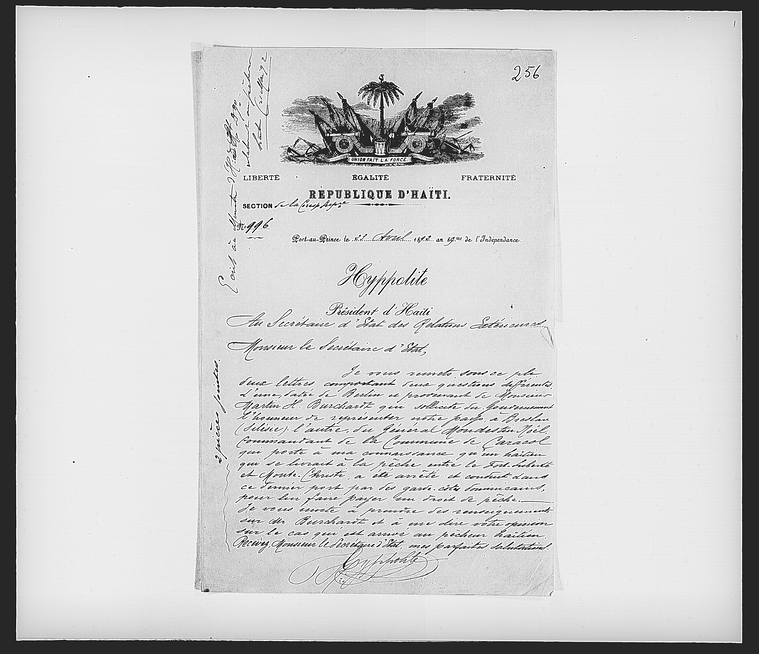 256
L'UNION FAIT LA FORCE
LIBERTÉ ÉGALITÉ FRATERNITÉ
RÉPUBLIQUE D'HAÏTI.
SECTION de la Corresp
N° 996
Port-au-Prince le Avril 189 an de l'Indépendance
Hyppolite
Président d'Haïti
Au Secrétaire d'Etat des Relations Extérieures
Monsieur le Secrétaire d'Etat,
Je vous remets sous ce pli
deux lettres comportant deux questions différentes
L'une datée de Berlin et provenant de Monsieur
Martin H. Burchardt qui sollicite du Gouvernement
l'honneur de représenter notre pays à Breslau
(Silésie); l'autre du Général Mondestin Noël
Commandant de la Commune de Caracol
qui porte à ma connaissance qu'un haïtien
qui se livrait à la pêche entre le Fort-Liberté
et Monte-Christe a été arrêté et conduit dans
ce dernier port par des garde côtes dominicains,
pour leur faire payer un droit de pêche.
Je vous invite à prendre des renseignements
sur Mr Burchardt et à me dire votre opinion
sur le cas qui est arrivé au pêcheur haïtien
Recevez, Monsieur le Secrétaire d'Etat, mes parfaites salutations.
Hyppolite
2 pièces jointes.
Ecrit au Ministre d'Haïti